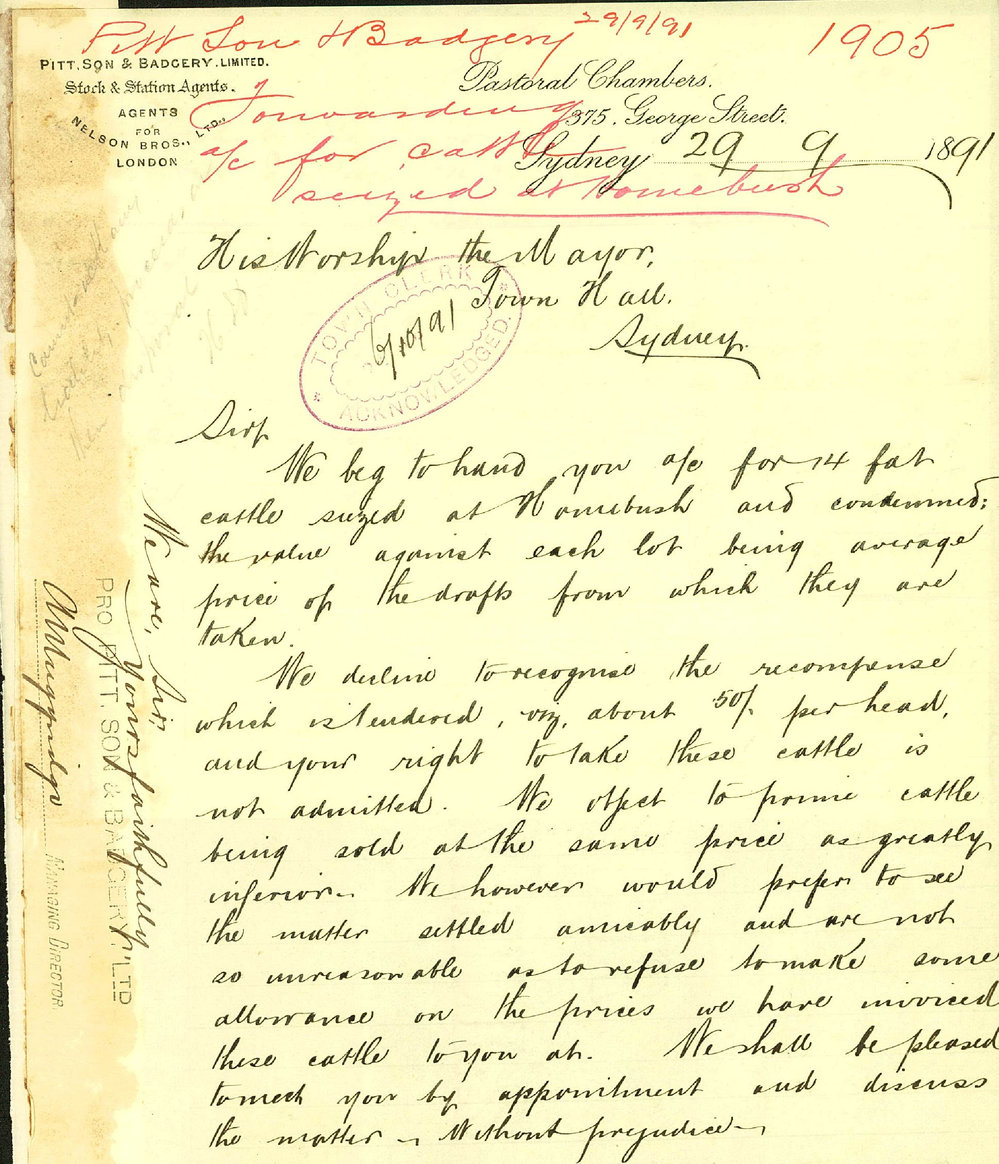 Pitt Son & Badgery 29/9/91 1905
PITT, SON & BADGERY. LIMITED.
Stock & Station Agents.
AGENTS
FOR
NELSON BROS., LTD.,
LONDON
Pastoral Chambers.
375. George Street.
Sydney 29 9 1891
Forwarding
a/c for cattle
seized at Homebush
His Worship the Mayor,
Town Hall.
Sydney.
TOWN CLERK
6/10/91
ACKNOWLEDGED.
Sir,
We beg to hand you a/c for 14 fat
cattle siezed at Homebush and condemned;
the value against each lot being average
price of the drafts from which they are
taken.
We decline to recognise the recompense
which is tendered, viz, about 50/- per head,
and your right to take these cattle is
not admitted. We object to prime cattle
being sold at the same price as greatly
inferior - We however would prefer to see
the matter settled amicably and are not
so unreasonable as to refuse to make some
allowance on the prices we have invoiced
these cattle to you at. We shall be pleased
to meet you by appointment and discuss
the matter - Without prejudice -
We are, Sir,
Yours faithfully
PRO PITT. SON & BADGERY. LTD
MANAGING DIRECTOR.